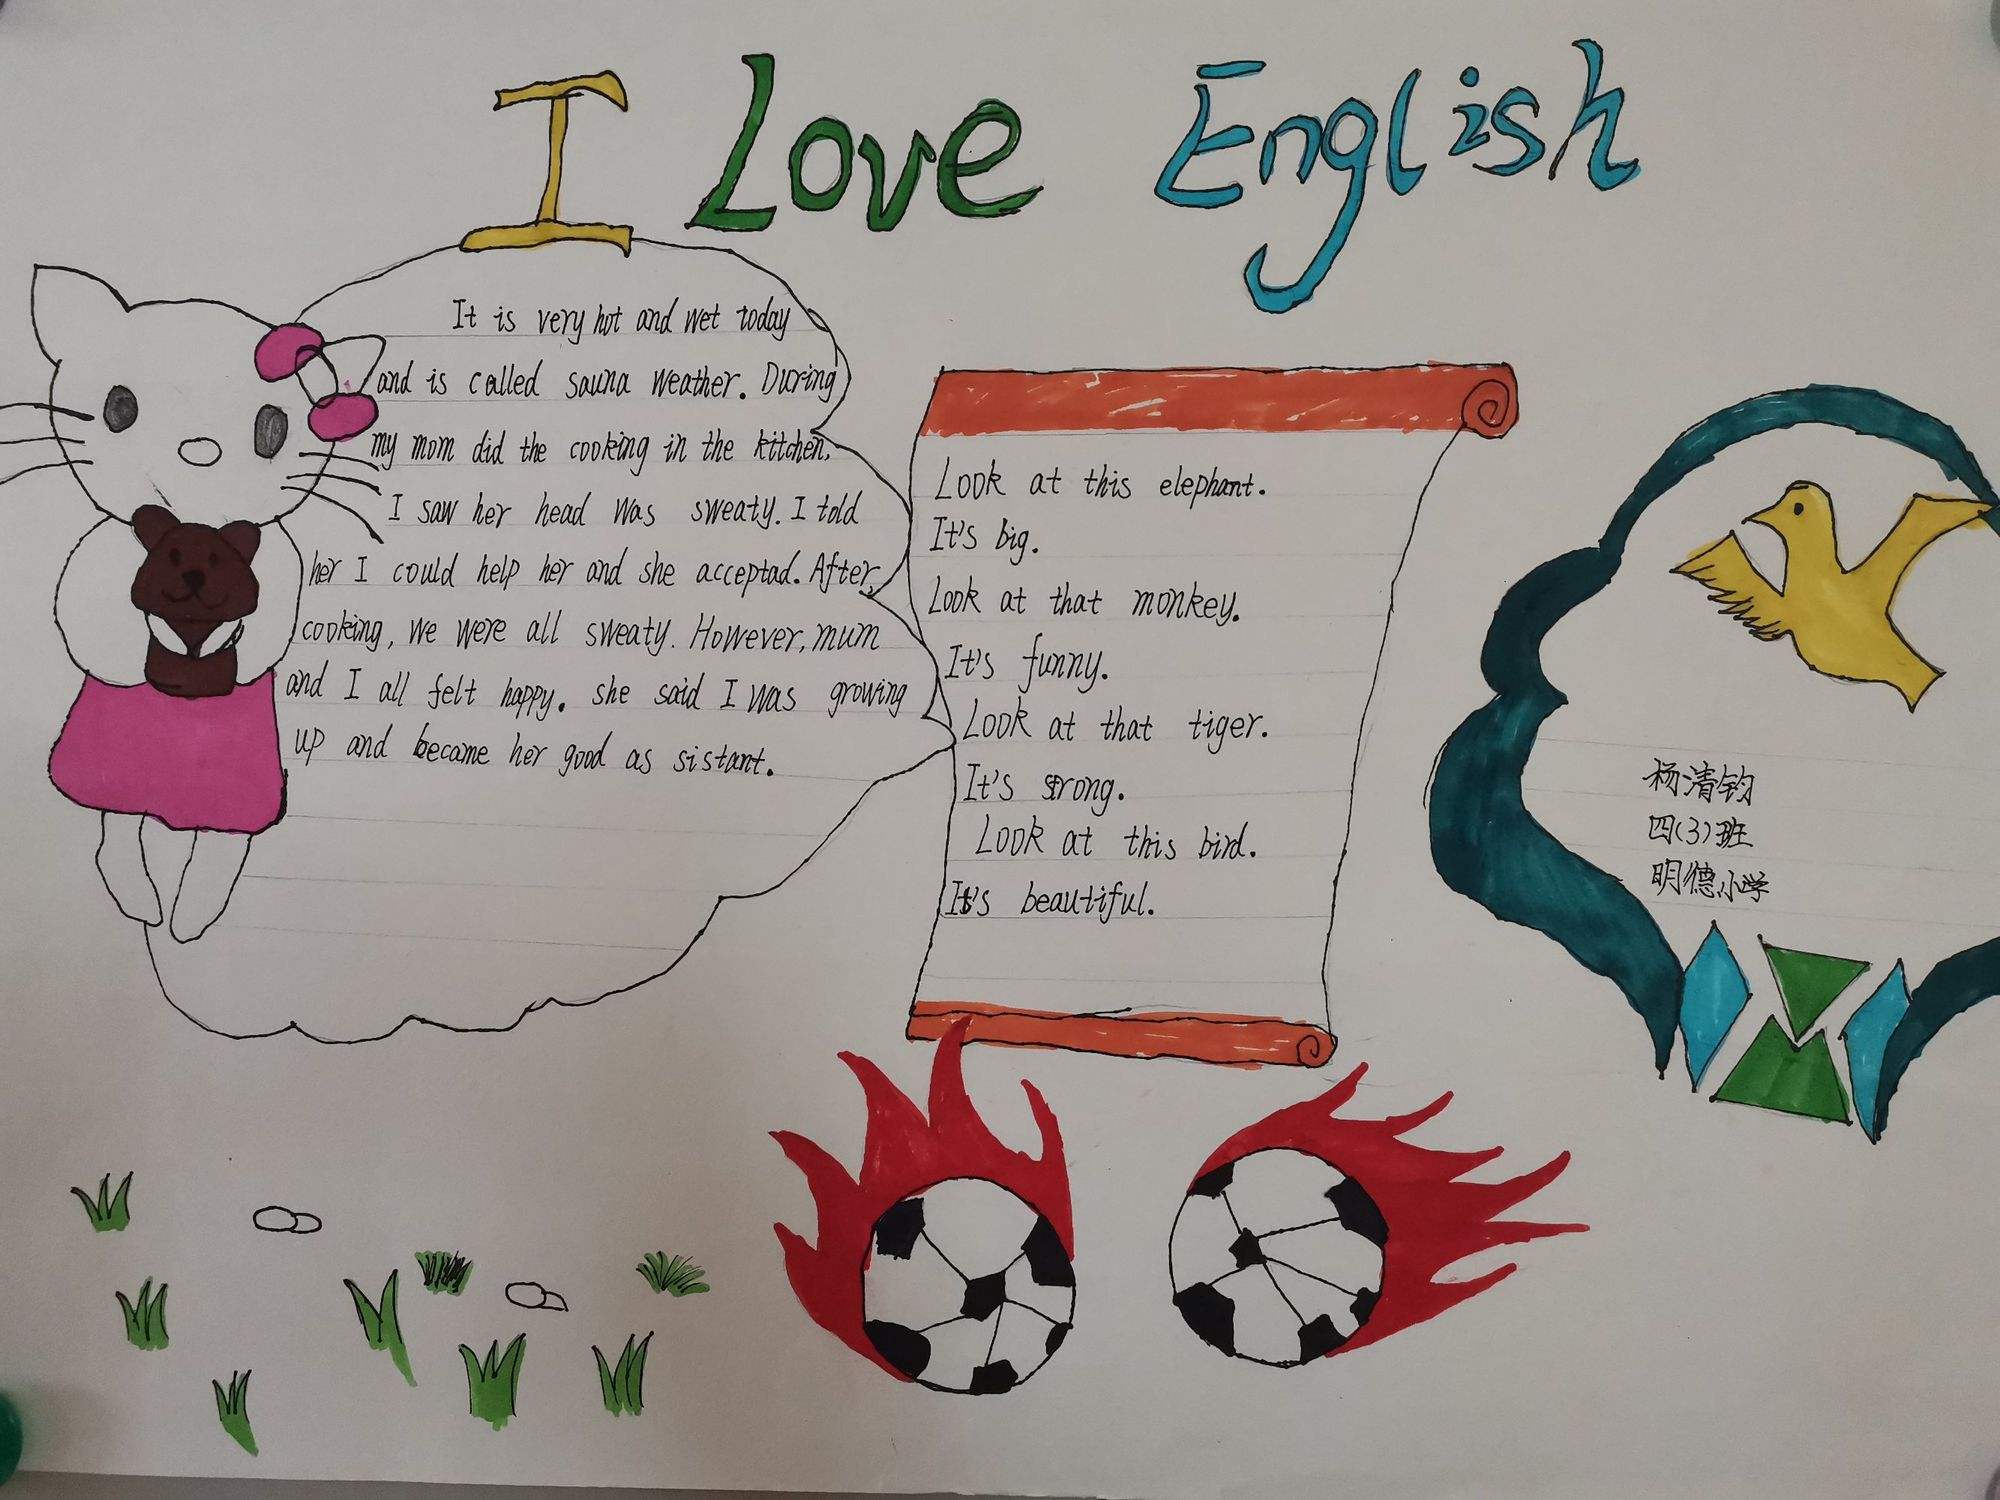 I Love English
It is very hot and wet today
and is called sauna weather. During
my mom did the cooking in the kitchen,
I saw her head was sweaty. I told
her I could help her and she acceptad. After
cooking, we were all sweaty. However, mum
and I all felt happy. she said I was growing
up and became her good as sistant.
Look at this elephant.
It's big.
Look at that monkey.
It's funny.
Look at that tiger.
It's strong.
Look at this bird.
It's beautiful.
杨清钧
四(3)班
明德小学